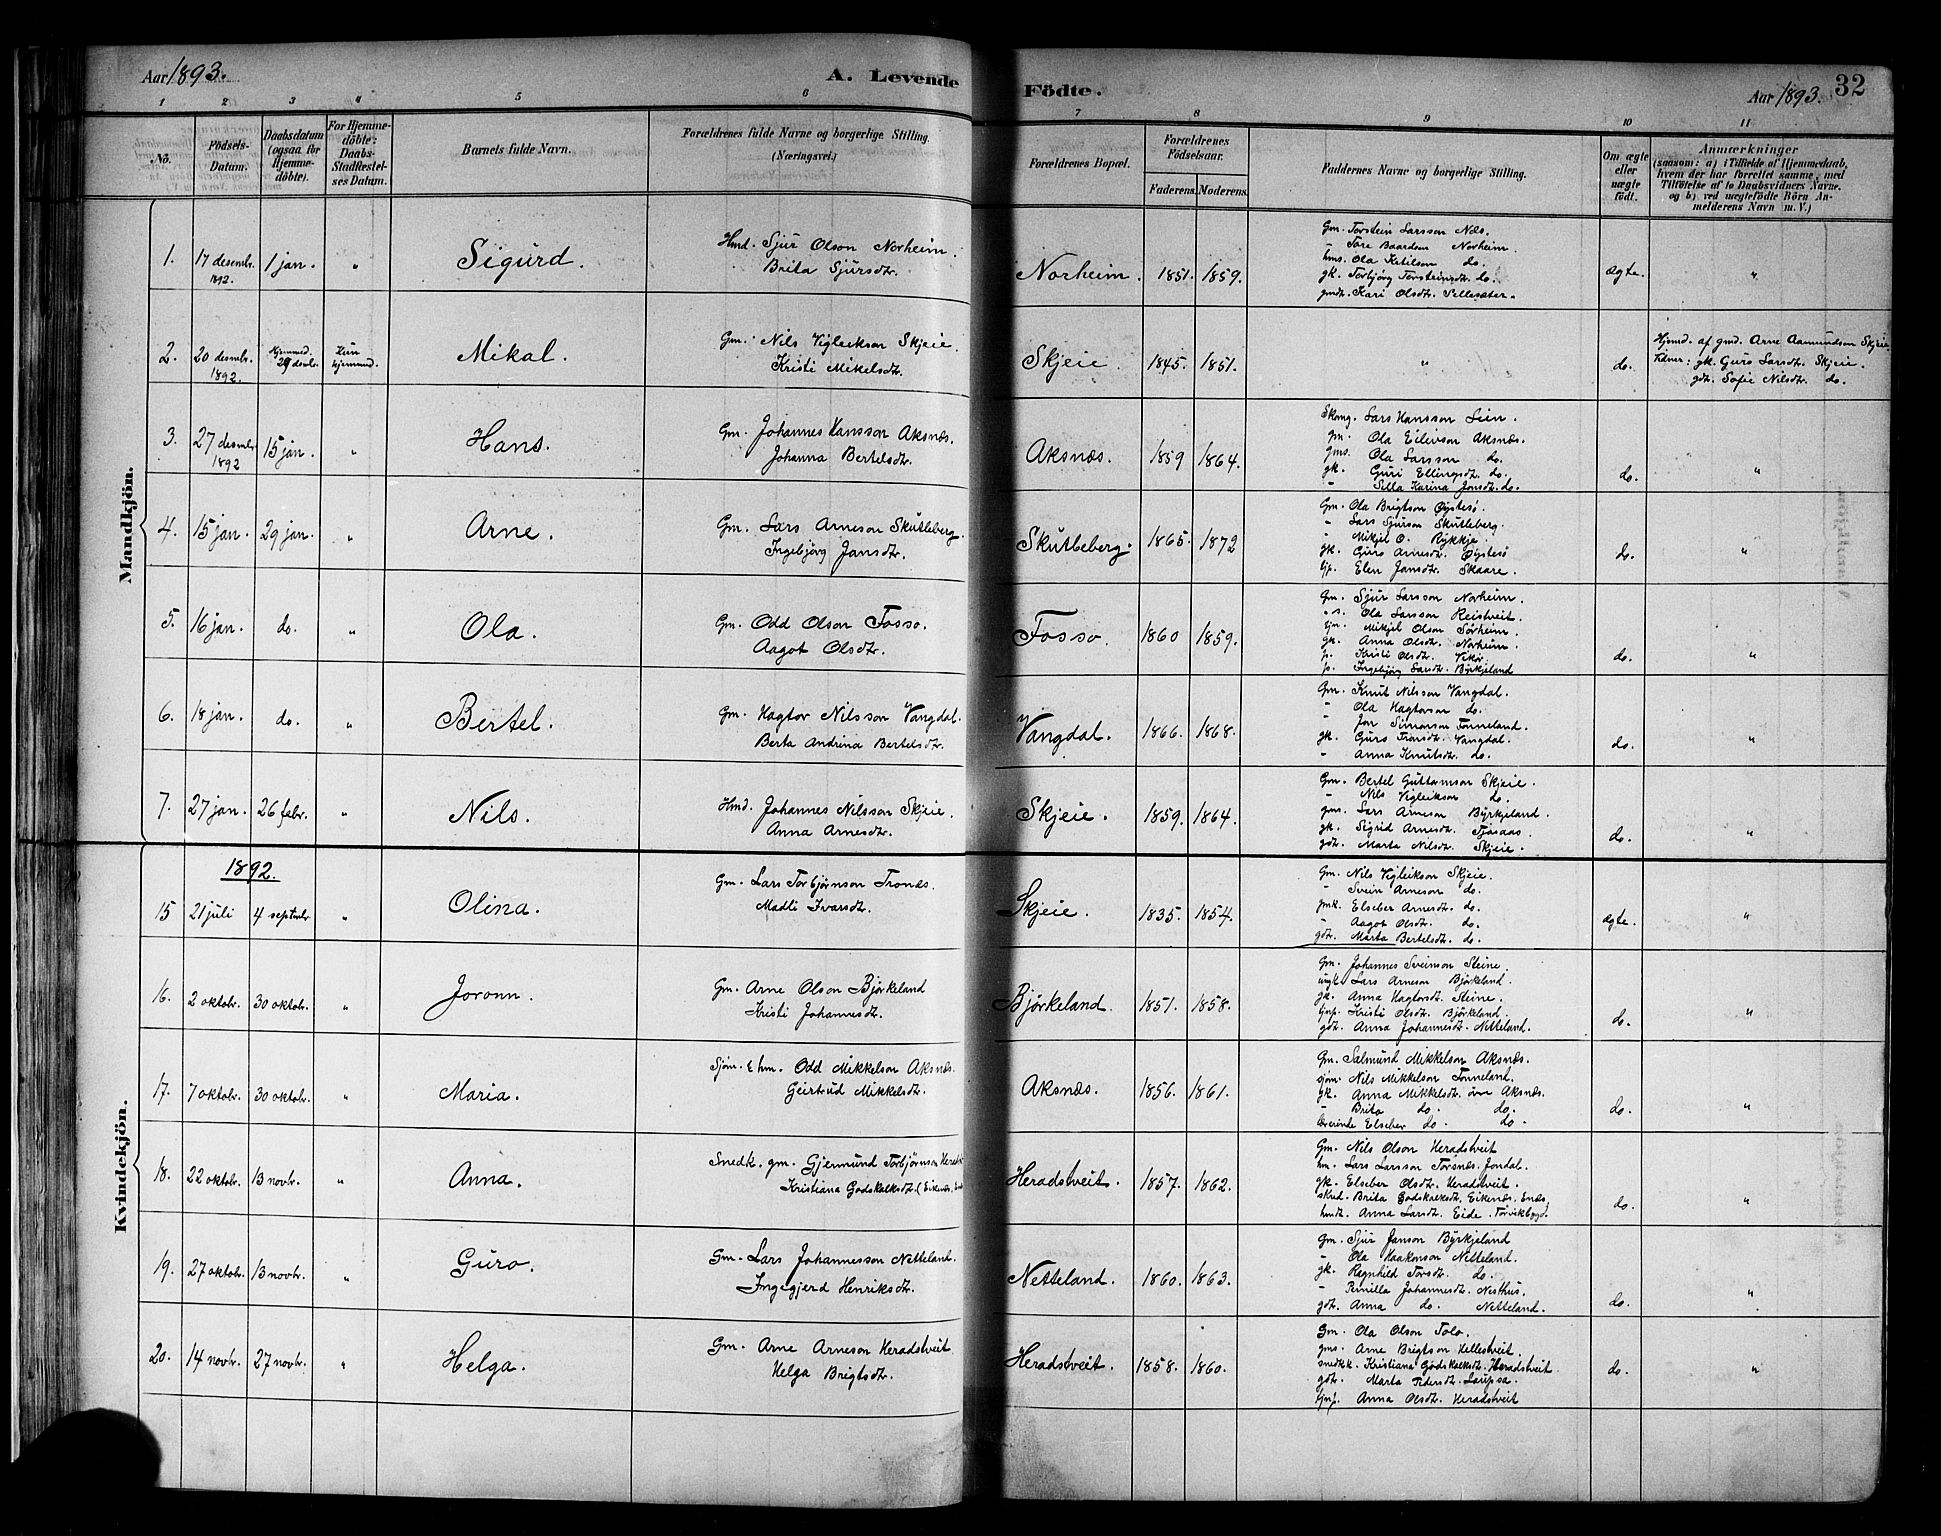 Aar 1893. A. Levende Födte. Aar 1893. 32
1 2 3 4 5 6 7 8 9 10 11
No. Födsels-Datum. Daabsdatum (ogsaa for Hjemmedöbte). For Hjemmedöbte: Daabs-Stadfæstelses Datum. Barnets fulde Navn. Forældrenes fulde Navne og borgerlige Stilling. (Næringsvei.) Forældrenes Bopæl. Forældrenes Födselsaar. Faderens. Moderens. Faddernes Navne og borgerlige Stilling. Om ægte eller uægte födt. Anmærkninger (saasom: a) i Tilfælde af Hjemmedaab, hvem der har forrettet samme, med Tilföielse af to Daabsvidners Navne. og b) ved uægtefödte Börn Anmelderens Navn m. V.)
Mandkjön.
1. 17 desembr. 1892. 1 jan. " Sigurd.
Hmd. Sjur Olson Norheim.
Brita Sjursdtr.
Norheim. 1851. 1859.
Gm. Torstein Larsson Næs.
" Tore Baardson Norheim.
hms. Ola Ketilson do.
gk. Torbjørg Torsteinsdtr. do.
gmdt. Kari Olsdtr. Sellesæter.
ægte. "
2. 20 desmbr. 1892. Hjemmed. 29 desbr. Kun hjemmed. Mikal.
Gm. Nils Vigleikson Skjeie.
Kristi Mikelsdtr.
Skjeie. 1845. 1851. " do.
Hjemd. af gmd. Arne Aamundson Skjeie.
Vidner: gk. Guro Larsdtr. Skjeie.
gdt. Sofie Nilsdtr. do.
3. 27 desmbr. 1892 15 jan. " Hans.
Gm. Johannes Hansson Aksnæs.
Johanna Bertelsdtr.
Aksnæs. 1859 1864.
Lars Hansson Lein.
gm. Ola Eilevson Aksnæs.
gms. Ola Larsson do.
gk. Guri Ellingsdtr. do.
" Silla Karina Jonsdtr. do.
do. "
4. 15 jan. 29 jan. " Arne.
Gm. Lars Arneson Skutleberg.
Ingebjørg Jansdtr.
Skutleberg. 1865. 1872
Gm. Ola Brigtson Øystesø
" Lars Sjurson Skutleberg.
" Mikjel O. Rykkje.
gk. Guro Arnesdtr. Øystesø
tjp. Elen Jansdtr. Skaare.
do. "
5. 16 jan. do. " Ola.
Gm. Odd Olson Fosso.
Aagot Olsdtr.
Fosso. 1860 1859.
Gm. Sjur Larsson Norheim.
Ola Larsson Reistveit.
Mikjel Olson Sørheim.
gk. Anna Olsdtr. Norheim.
p. Kristi Olsdtr. Vikør.
p. Ingebjørg Larsdtr. Byrkjeland
do. "
6. 18 jan. do. " Bertel.
Gm. Hagtor Nilsson Vangdal.
Berta Andrina Bertelsdtr.
Vangdal. 1866. 1868.
Gm. Knut Nilsson Vangdal.
" Ola Hagtorson do.
" Jon Simonson Tonneland.
gk. Guro Tronsdtr. Vangdal.
" Anna Knutsdtr. do.
do. "
7. 27 jan. 26 febr. " Nils.
Hmd. Johannes Nilsson Skjeie.
Anna Arnesdtr.
Skjeie. 1859. 1864.
Gm. Bertel Guttormson Skjeie.
" Nils Vigleikson do.
gms. Lars Arneson Byrkjeland.
gk. Sigrid Arnesdtr. Tjosaas.
gdt. Marta Nilsdtr. Skjeie.
do. "
Kvindekjön.
1892.
15 21 juli 4 septmbr. " Olina.
Gm. Lars Torbjørnson Tronæs.
Madli Ivarsdtr.
Skjeie. 1835. 1854.
Gm. Nils Vigleikson Skjeie.
" Svein Arneson do.
gmk. Elseber Arnesdtr. do.
" Aagot Olsdtr. do.
gdt. Marta Bertelsdtr. do.
ægte. "
16. 2 oktobr. 30 oktobr. " Joronn.
Gm. Arne Olson Bjørkeland
Kristi Johannesdtr.
Bjørkeland. 1851. 1858.
Gm. Johannes Sveinson Steine.
ungk. Lars Arneson Bjørkeland.
gk. Anna Hagtorsdtr. Steine.
tjnp. Kristi Olsdtr. Bjørkeland.
gdt. Anna Johannesdtr. Netteland.
do. "
17. 7 oktobr. 30 oktobr. " Maria.
Sjøm. & hm. Odd Mikkelson Aksnæs.
Geirtrud Mikkelsdtr.
Aksnæs. 1856. 1861.
Gm. Salmund Mikkelson Aksnæs.
sjøm. Nils Mikkelson Tonneland.
gk. Anna Mikkelsdtr. øvre Aksnæs.
" Brita do. do.
lærerinde Elseber do. do.
do. "
18. 22 oktobr. 13 novbr. " Anna.
Snedk. gm. Gjermund Torbjørnson
Kristiana Godskalksdtr.
Heradstveit. 1857. 1862.
Gm. Nils Olson Heradstveit
hm. Lars Larsson Torsnæs. Jondal.
gk. Elseber Olsdtr. Heradstveit.
Brita Godskalksdtr. Eikenæs. Enæs.
hmdt. Anna Larsdtr. Eide. Torvikbygd.
do. "
19. 27 oktobr. 13 novbr. " Guro.
Gm. Lars Johannesson Netteland.
Ingegjerd Henriksdtr.
Netteland. 1860. 1863.
Gm. Sjur Janson Byrkjeland
" Ola Haakonson Netteland.
gk. Ragnhild Torsdtr. do.
" Pernilla Johannesdtr. Nesthus.
gdt. Anna do. Netteland.
do. "
20. 14 novbr. 27 novbr. " Helga.
Gm. Arne Arneson Heradstveit
Helga Brigtsdtr.
Heradstveit. 1858. 1860.
Gm. Ola Olson Tolo.
gms. Arne Brigtson Hellestveit.
snedkk. Kristiana Godskalksdtr. Heradstveit
gdt. Marta Pedersdtr. Laupsa.
tjnp. Anna Olsdtr. Heradstveit
do. "